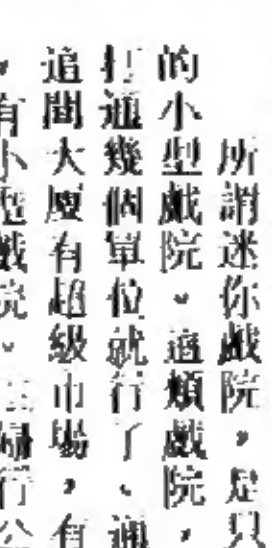 所謂迷你戲院，是只
的小型戲院。這類戲院，
打通幾個單位就行了、通
這間大廈有超級市場，有
，有小型戲院。三婦行公